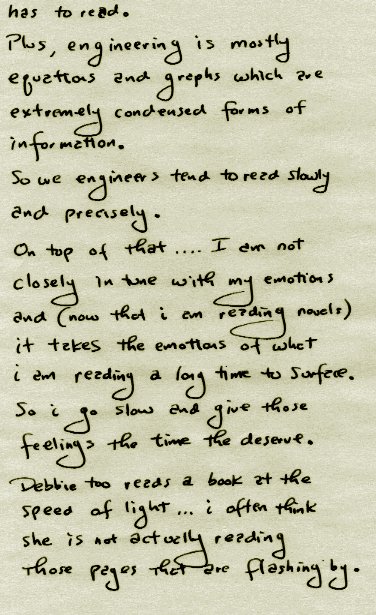 has to read.
Plus, engineering is mostly
equations and graphs which are
extremely condensed forms of
information.
So we engineers tend to read slowly
and precisely.
On top of that .... I am not
closely in tune with my emotions
and (now that i am reading novels)
it takes the emotions of what
i am reading a long time to surface.
So i go slow and give those
feelings the time the deserve.
Debbie too reads a book at the
speed of light... i often think
she is not actually reading
those pages that are flashing by.